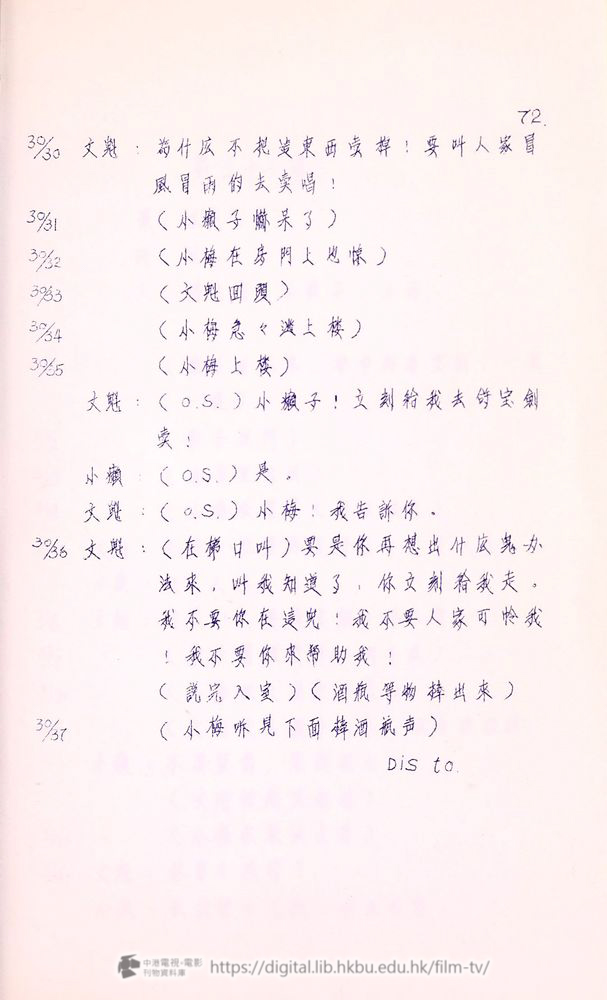 72.
30/30 文魁：為什庅不把這東西卖掉！要叫人家冒
風冒雨的去卖唱！
30/31 （小癩子嚇呆了）
30/32 （小梅在房門上也惊）
30/33 （文魁回頭）
30/34 （小梅急々溜上楼）
30/35 （小梅上楼）
文魁：（O.S.）小癩子！立刻给我去的宝劍
卖！
小癩：（O.S.）是。
文魁：（O.S.）小梅！我告訴你。
30/36 文魁：（在梯口叫）要是你再想出什庅鬼办
法來，叫我知道了，你立刻给我走。
我不要你在這兒！我不要人家可怜我
！我不要你來帮助我！
（説完入室）（酒瓶等物摔出來）
30/37 （小梅听見下面摔酒瓶声）
DIS to.
中港電視·電影
刊物資料庫
https://digital.lib.hkbu.edu.hk/film-tv/